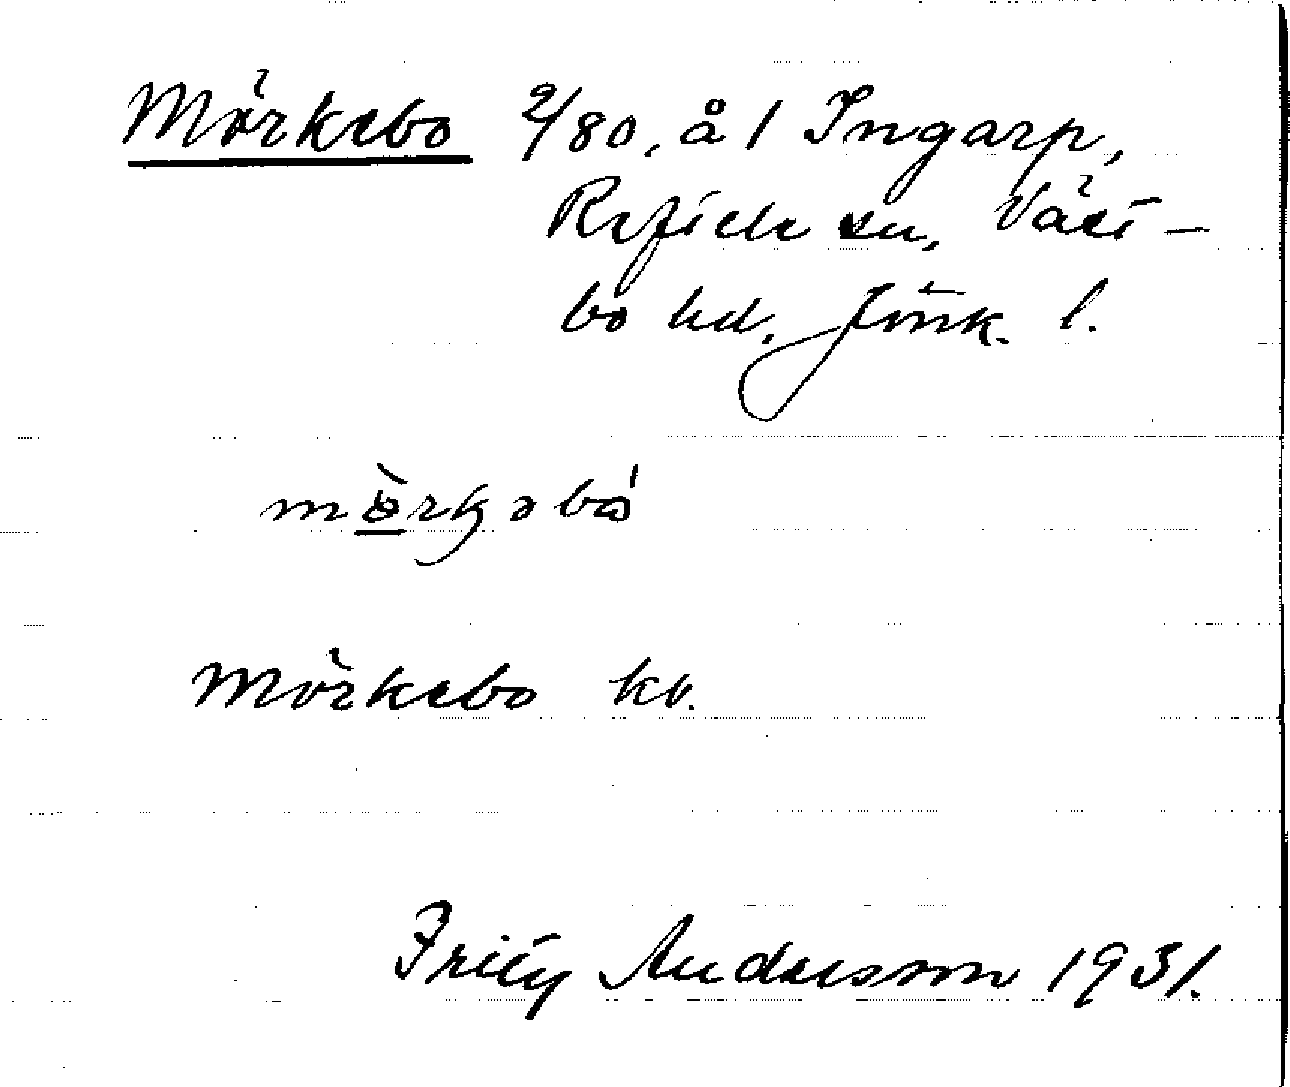 Mörkebo 2/80, å 1 Ingarp,
Reftele sn, Väst-
bo hd, Jönk. l.
Mörkebo kv.
Fritz Andersson 1931.